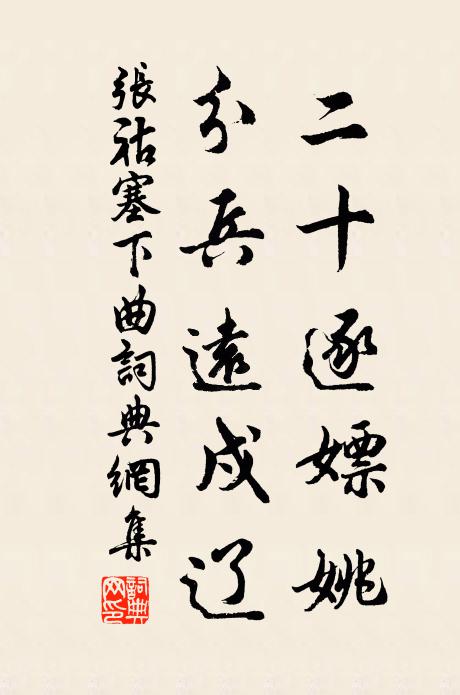 二十逐嫖姚
分兵遠戍辽
張祜塞下曲詞典網集
詞典网印